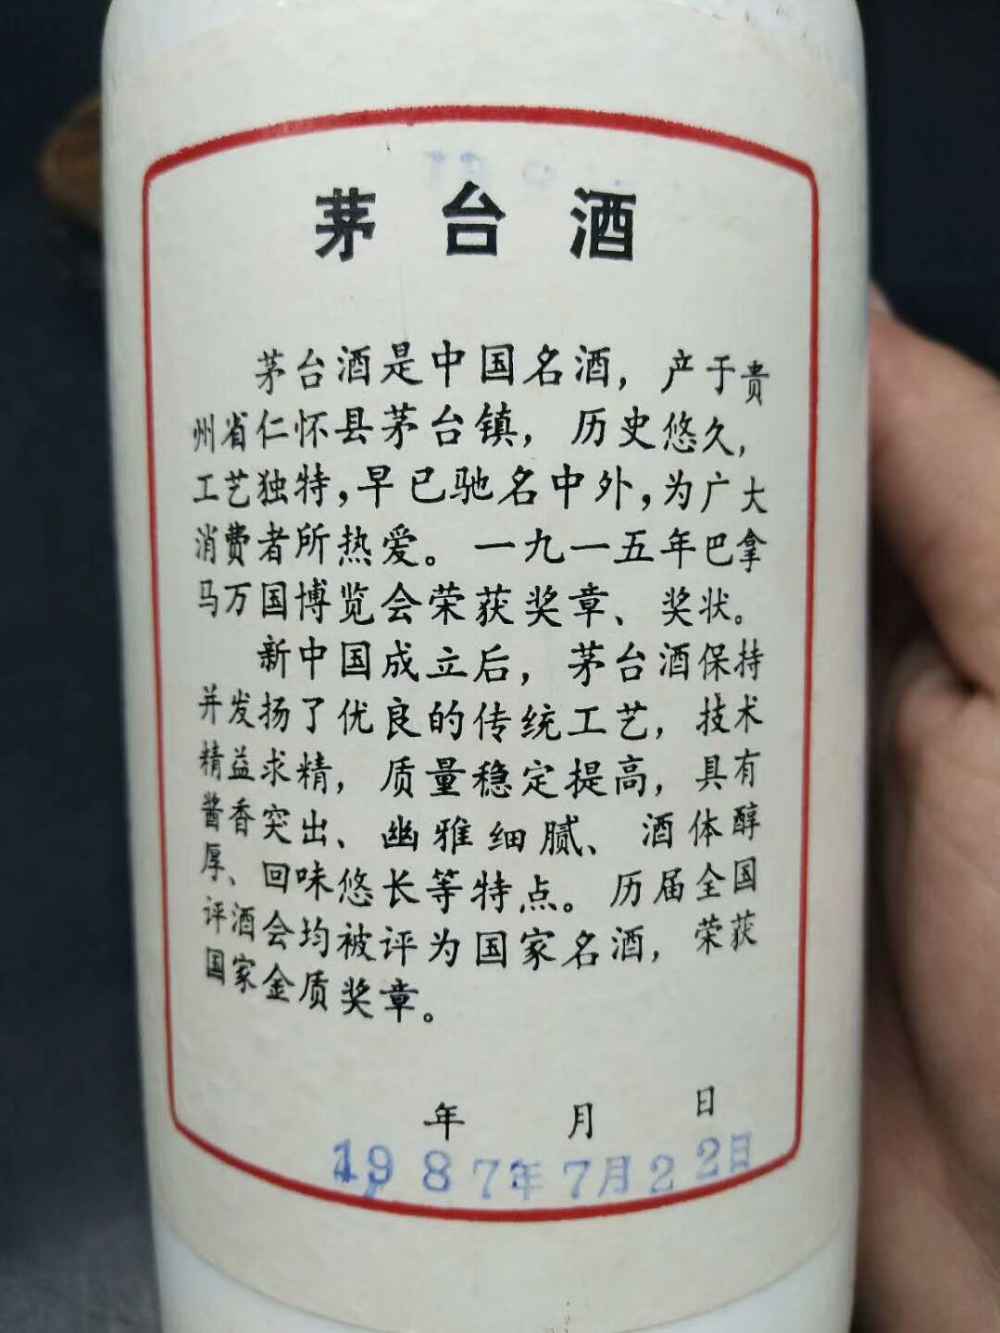 茅台酒
茅台酒是中国名酒，产于贵
州省仁怀县茅台镇，历史悠久，
工艺独特，早已驰名中外，为广大
消费者所热爱。一九一五年巴拿
马万国博览会荣获奖章、奖状。
新中国成立后，茅台酒保持
并发扬了优良的传统工艺，技术
精益求精，质量稳定提高，具有
酱香突出、幽雅细腻、酒体醇
厚、回味悠长等特点。历届全国
评酒会均被评为国家名酒，荣获
国家金质奖章。
年 月 日
1987年7月22日